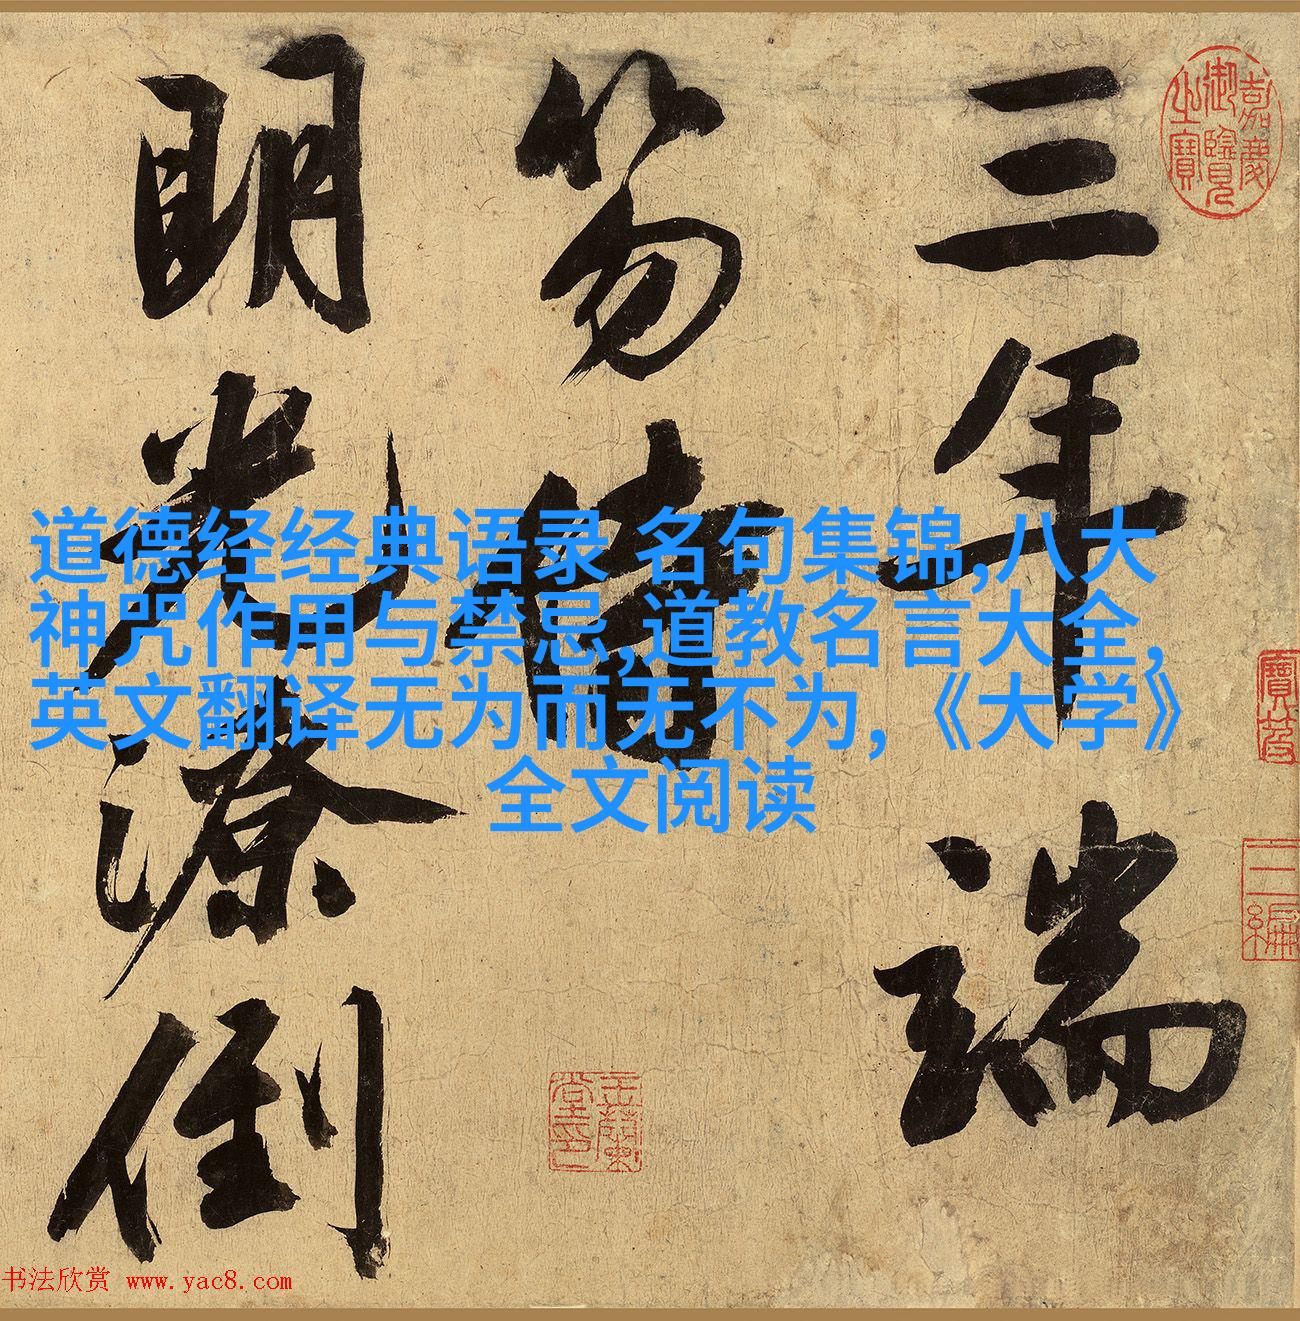 三年端
笏待
明光潦倒
道德经经典语录 名句集锦,八大
神咒作用与禁忌,道教名言大全,
英文翻译无为而无不为,《大学》
全文阅读
嘉慶
御覽
之寶
寶笈
三編
書法欣赏 www.yac8.com